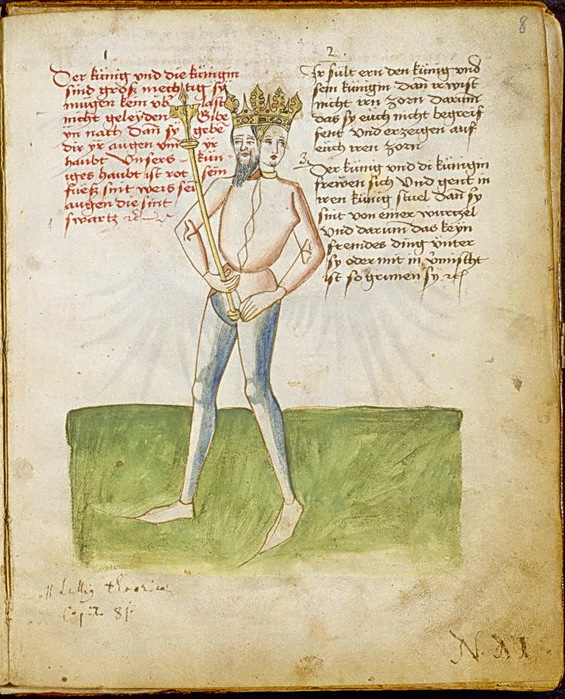 8
1
Der künig vnd die künigin
sind groß mechtig sy
mügen kein vb last
nicht geleyden Gibe
yn natt dan sy gebe
dir yr augen vnd yr
haubt Vnsers kün
iges haubt ist rot sein
fueß sint weis sei
augen die sint
swartz
2.
Ir sült ern den künig vnd
sein künigin dan
nicht ren zorn darum
das sy euch nicht begreif
fent Vnd erzeigen auf
euch iren zorn
3
Der künig vnd di künigin
frewen sich Vnd gent in
iren künig stuel dan sy
sint von einer wurtzel
Vnd darum das keyn
fremdes ding vnter
sy oder mit in vermischt
ist so grimen sy
Capit. 81
N. XI